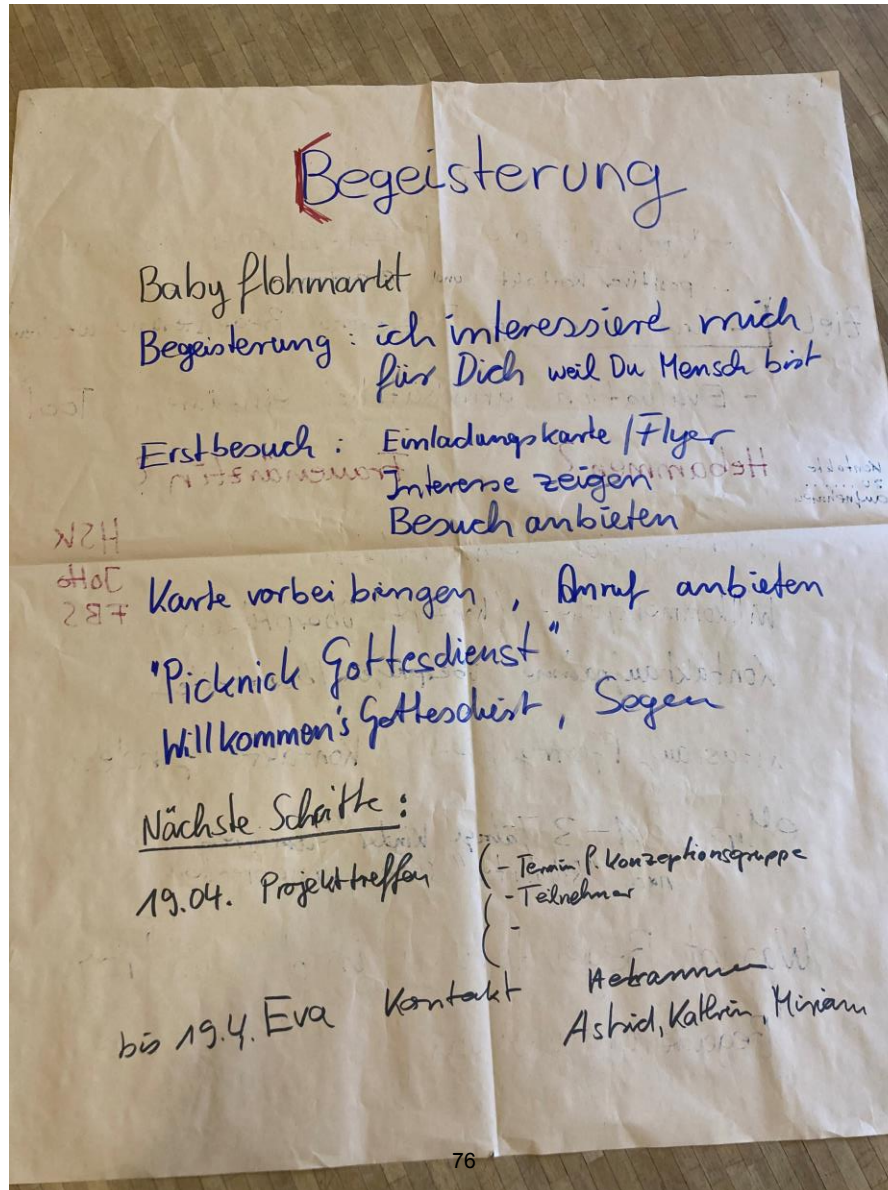 Begeisterung
Baby flohmarkt
Begeisterung : ich interessiere mich
für Dich weil Du Mensch bist
Erstbesuch : Einladungskarte / Flyer
Interesse zeigen
Besuch anbieten
Karte vorbei bringen , Anruf anbieten
"Picknick Gottesdienst"
Willkommen's Gottesdienst , Segen
Nächste Schritte :
19.04. Projekttreffen
- Termin f. Konzeptionsgruppe
- Teilnehmer
-
bis 19.4. Eva Kontakt Hebammen
Astrid, Kathrin, Miriam
76